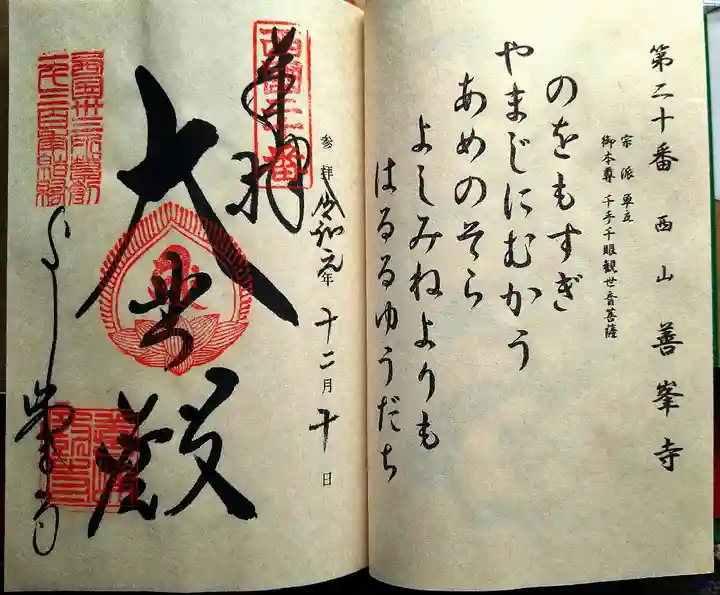 第二十番 西山 善峯寺
宗派 単立
御本尊 千手千眼観世音菩薩
のをもすぎ
やまじにむかう
あめのそら
よしみねよりも
はるるゆうだち
西国二十番
奉拝
参拝 令和元年 十二月 十日
大悲殿